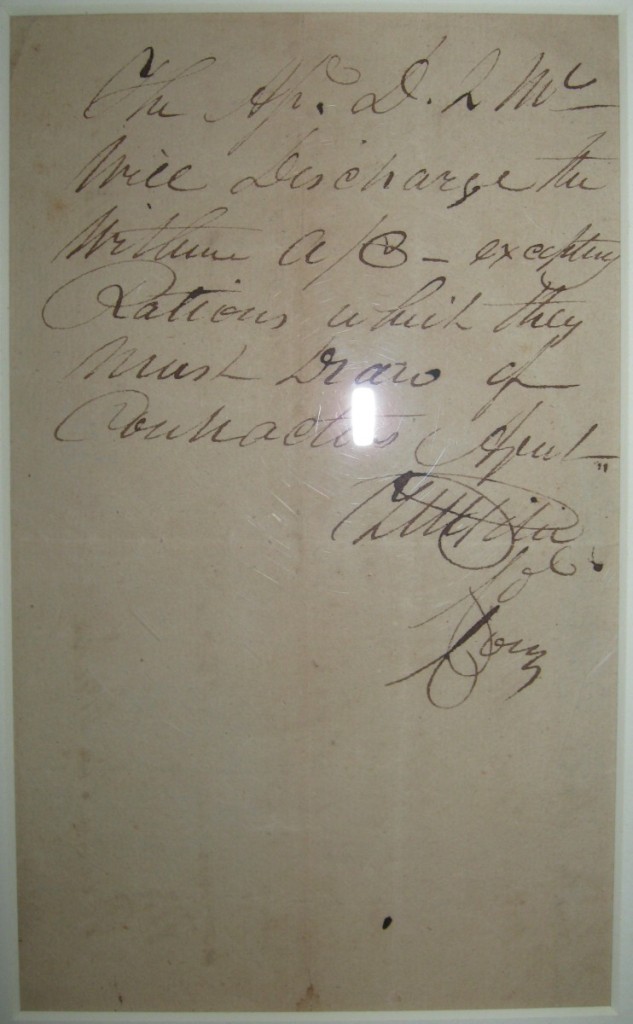 The Ap. D. Q Mr
Will Discharge the
Within a/c - excepting
Rations which they
must Draw of
Contractors Agent
Z M Pike
Col
Comg